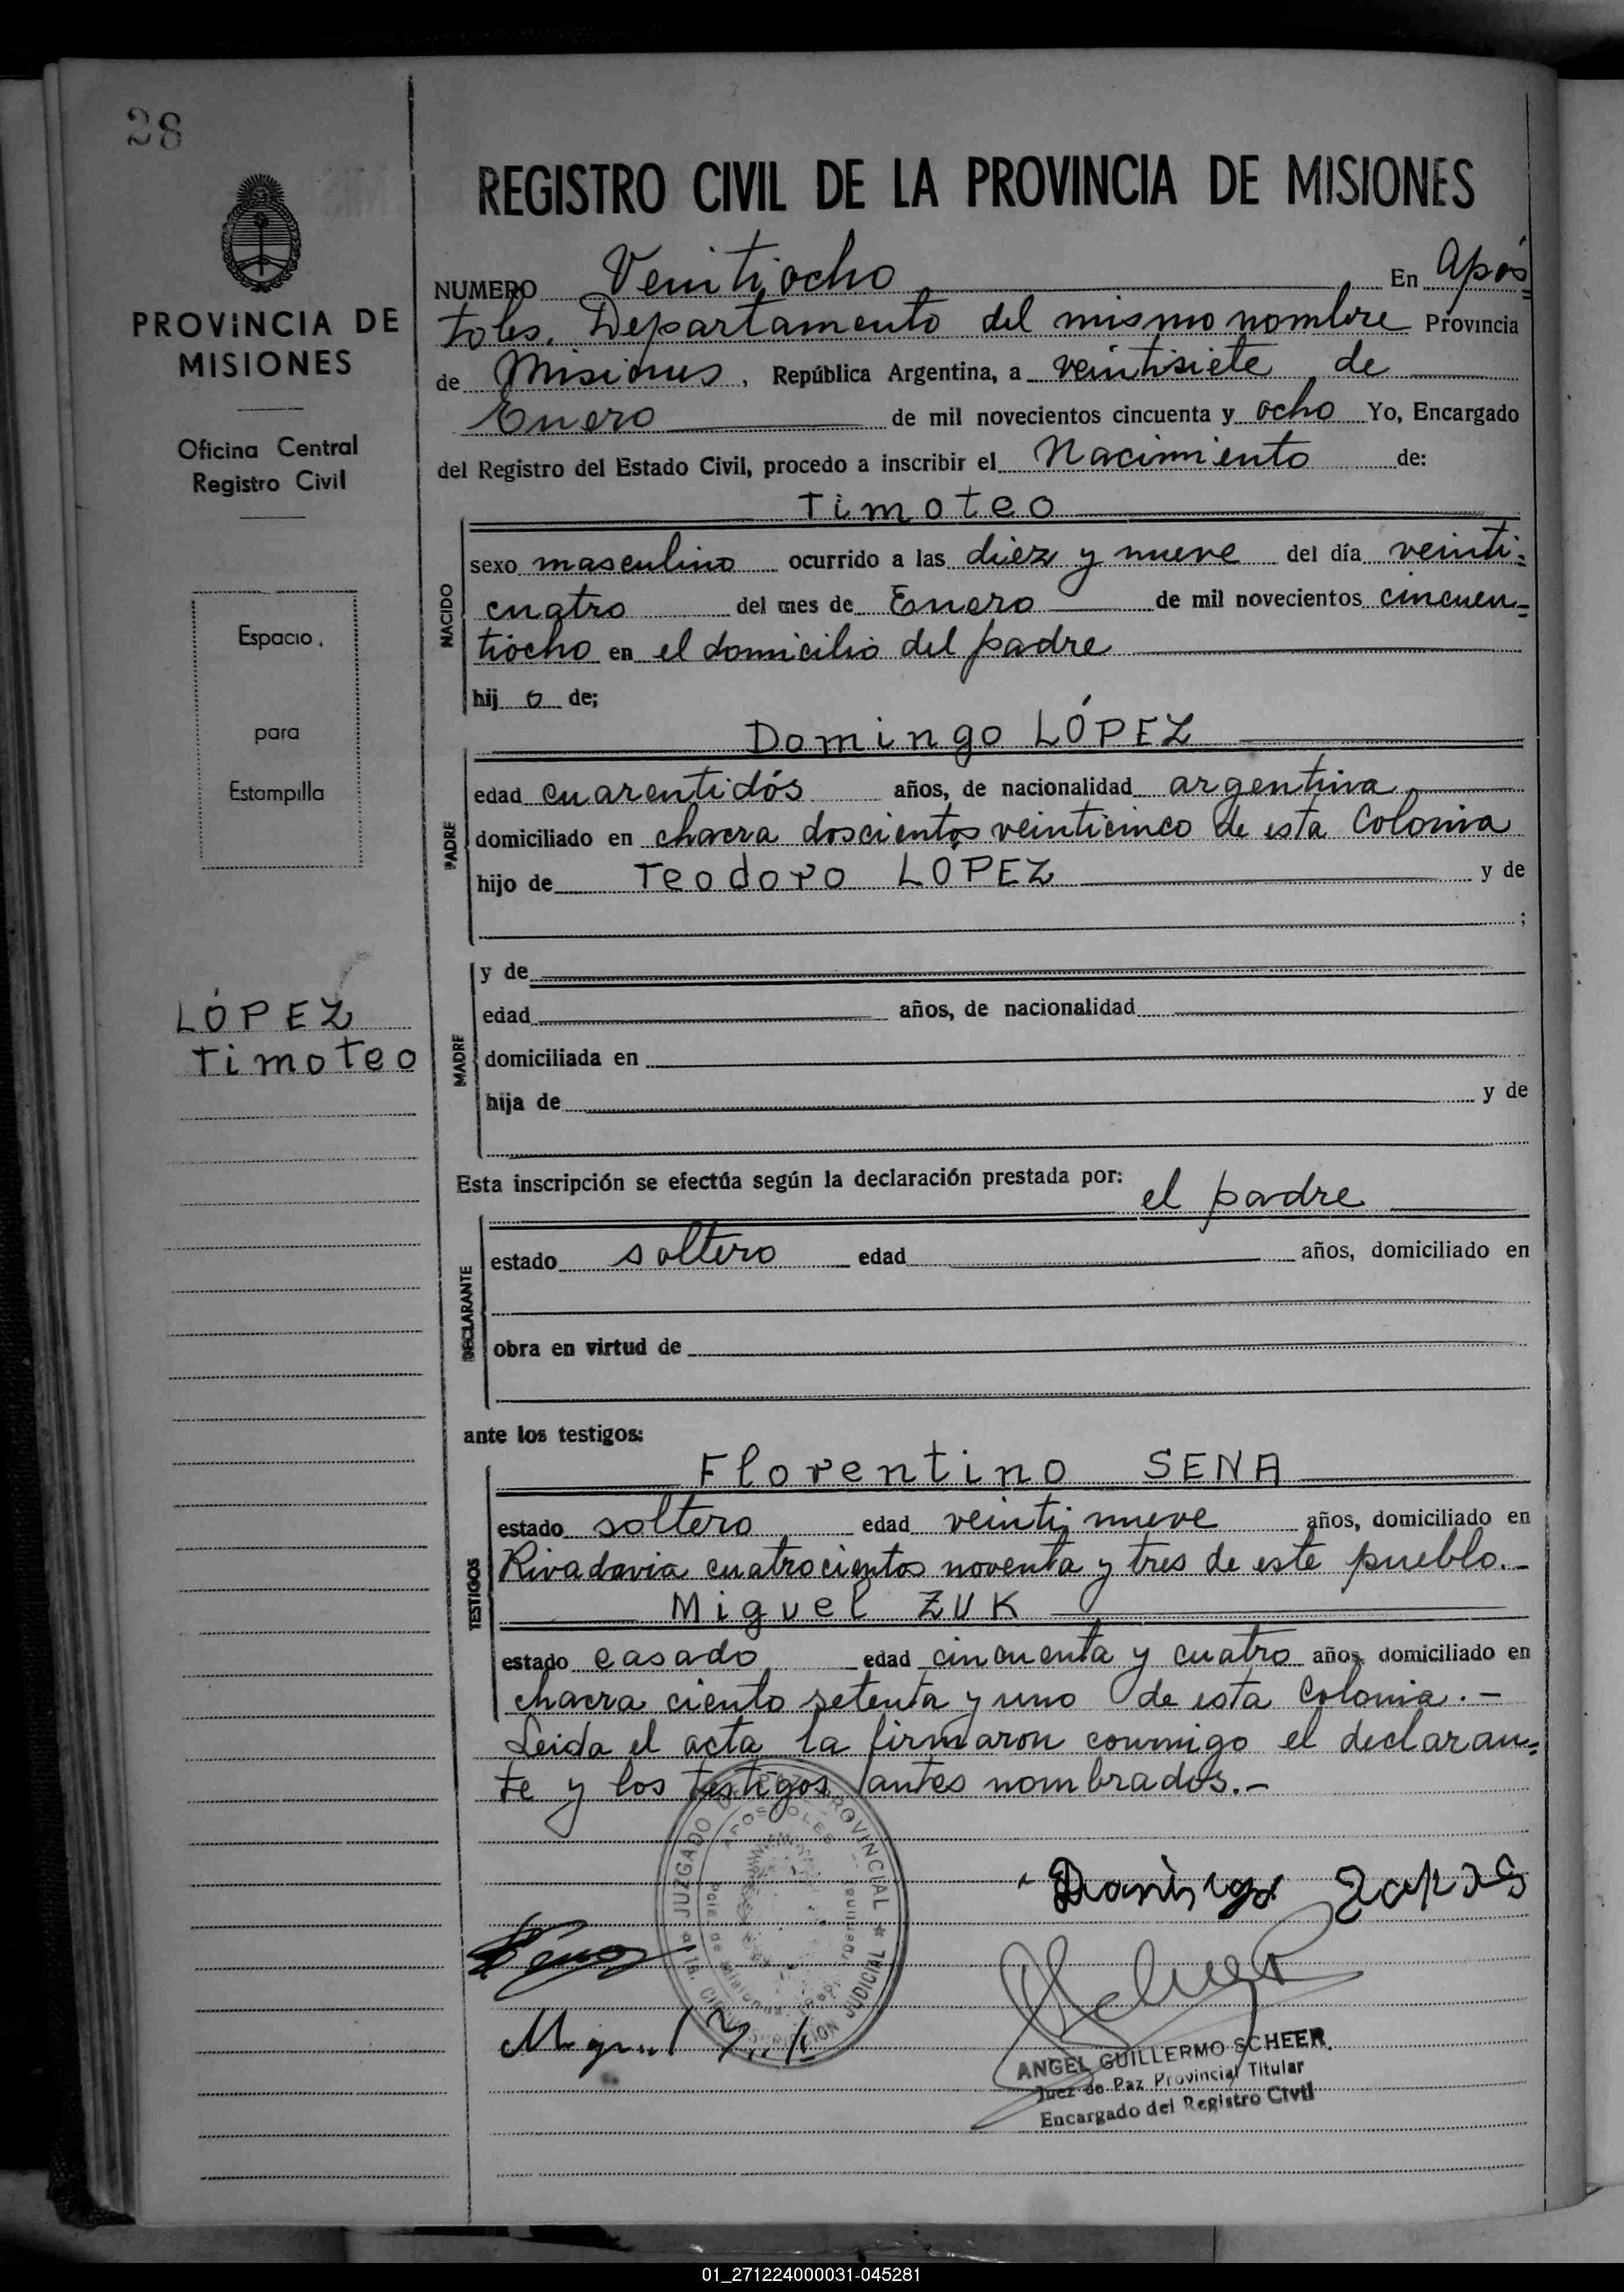 28
PROVINCIA DE
MISIONES
Oficina Central
Registro Civil
Espacio
para
Estampilla
LÓPEZ
Timoteo
REGISTRO CIVIL DE LA PROVINCIA DE MISIONES
NUMERO Venitiocho En Após=
toles. Departamento del mismo nombre Provincia
de Misiones, República Argentina, a veintisiete de
Enero de mil novecientos cincuenta y ocho Yo, Encargado
del Registro del Estado Civil, procedo a inscribir el Nacimiento de:
Timoteo
NACIDO
sexo masculino ocurrido a las diez y nueve del día veinti=
cuatro del mes de Enero de mil novecientos cincuen=
tiocho en el domicilio del padre
hij o de;
Domingo LÓPEZ
PADRE
edad cuarentidós años, de nacionalidad argentina
domiciliado en chacra doscientos veinticinco de esta Colonia
hijo de Teodoro LÓPEZ y de
;
MADRE
y de
edad años, de nacionalidad
domiciliada en
hija de y de
Esta inscripción se efectúa según la declaración prestada por: el padre
DECLARANTE
estado soltero edad años, domiciliado en
obra en virtud de
ante los testigos:
Florentino SENA
TESTIGOS
estado soltero edad veintinueve años, domiciliado en
Rivadavia cuatrocientos noventa y tres de este pueblo.-
Miguel ZUK
estado casado edad cincuenta y cuatro años, domiciliado en
chacra ciento setenta y uno de esta Colonia.-
Leida el acta la firmaron conmigo el declaran=
te y los testigos antes nombrados.-
JUZGADO DE PAZ PROVINCIAL
APOSTOLES
1a. CIRCUNSCRIPCION JUDICIAL
Domingo Lopes
Miguel Zuk
ANGEL GUILLERMO SCHEER
Juez de Paz Provincial Titular
Encargado del Registro Civil
01_271224000031-045281